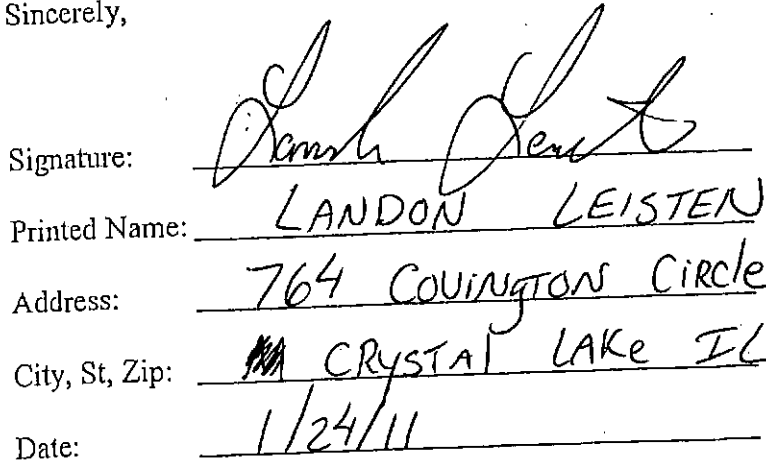 Sincerely,
Signature:
Printed Name: LANDON LEISTEN
Address: 764 COVINGTON CIRCLE
City, St, Zip: CRYSTAL LAKE IL
Date: 1/24/11